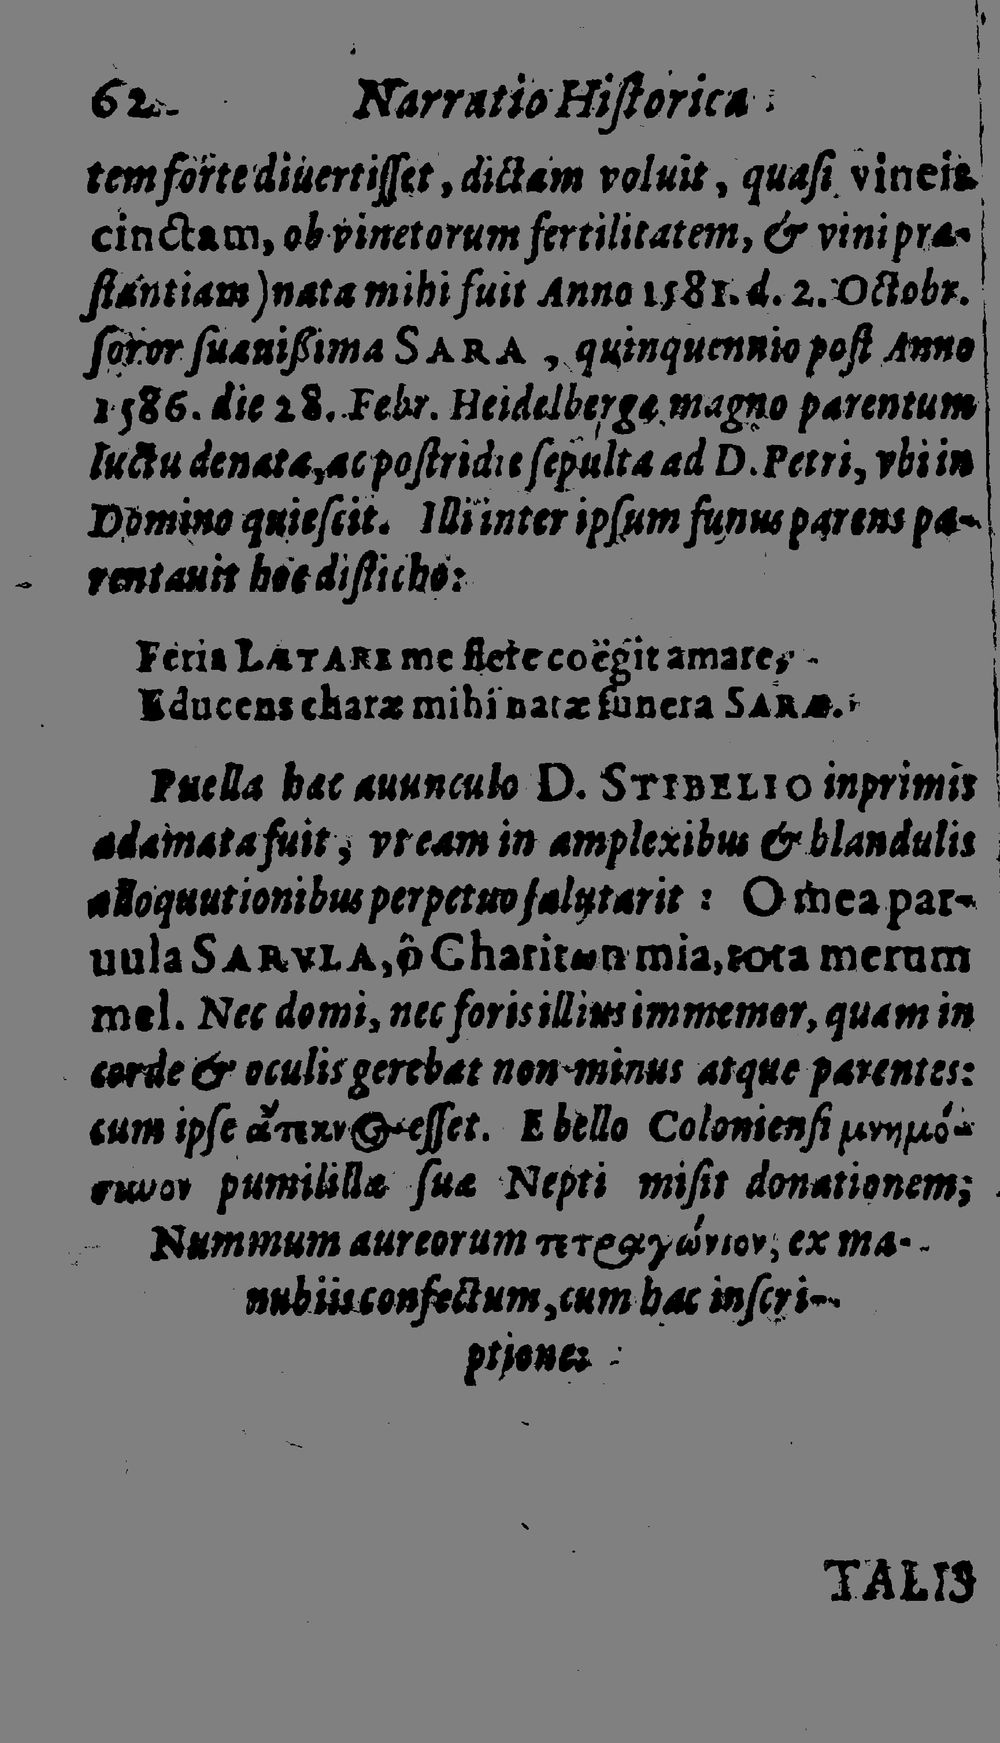 62 Narratio Hiſtorica
tem forte diuertiſſet, dictam voluit, quaſi vineis
cinctam, ob vinetorum fertilitatem, & vini præ-
ſtantiam) nata mihi fuit Anno 1581. d. 2. Octobr.
ſoror ſuauißima SARA, quinquennio poſt Anno
1586. die 28. Febr. Heidelbergæ magno parentum
luctu denata, ac poſtridie ſepulta ad D. Petri, vbi in
Domino quieſcit. Illi inter ipſum funus parens pa-
rentauit hoc diſticho:
Feria LÆTARE me flere coëgit amare,
Educens charæ mihi natæ funera SARÆ.
Puella hæc auunculo D. STIBELIO inprimis
adamata fuit, vt eam in amplexibus & blandulis
alloquutionibus perpetuo ſalutarit: O mea par-
uula SARVLA, ô Charitωn mia, tota merum
mel. Nec domi, nec foris illius immemor, quam in
corde & oculis gerebat non minus atque parentes:
cum ipſe ἄτεκνος eſſet. E bello Colonienſi μνημό-
συνον pumilillæ ſuæ Nepti miſit donationem;
Nummum aureorum τετραγώνιον, ex ma-
nubiis confectum, cum hac inſcri-
ptione:
TALIS